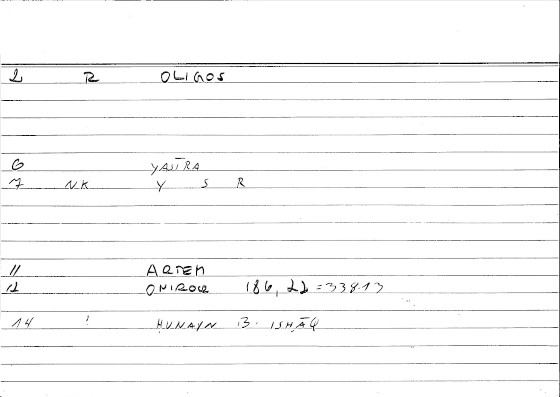 2 R OLIGOS
6 YASĪRA
7 NK Y S R
11 ARTEM
12 ONIROCR 186, 22 = 338.13
14 ! ḤUNAYN B. ISḤĀQ